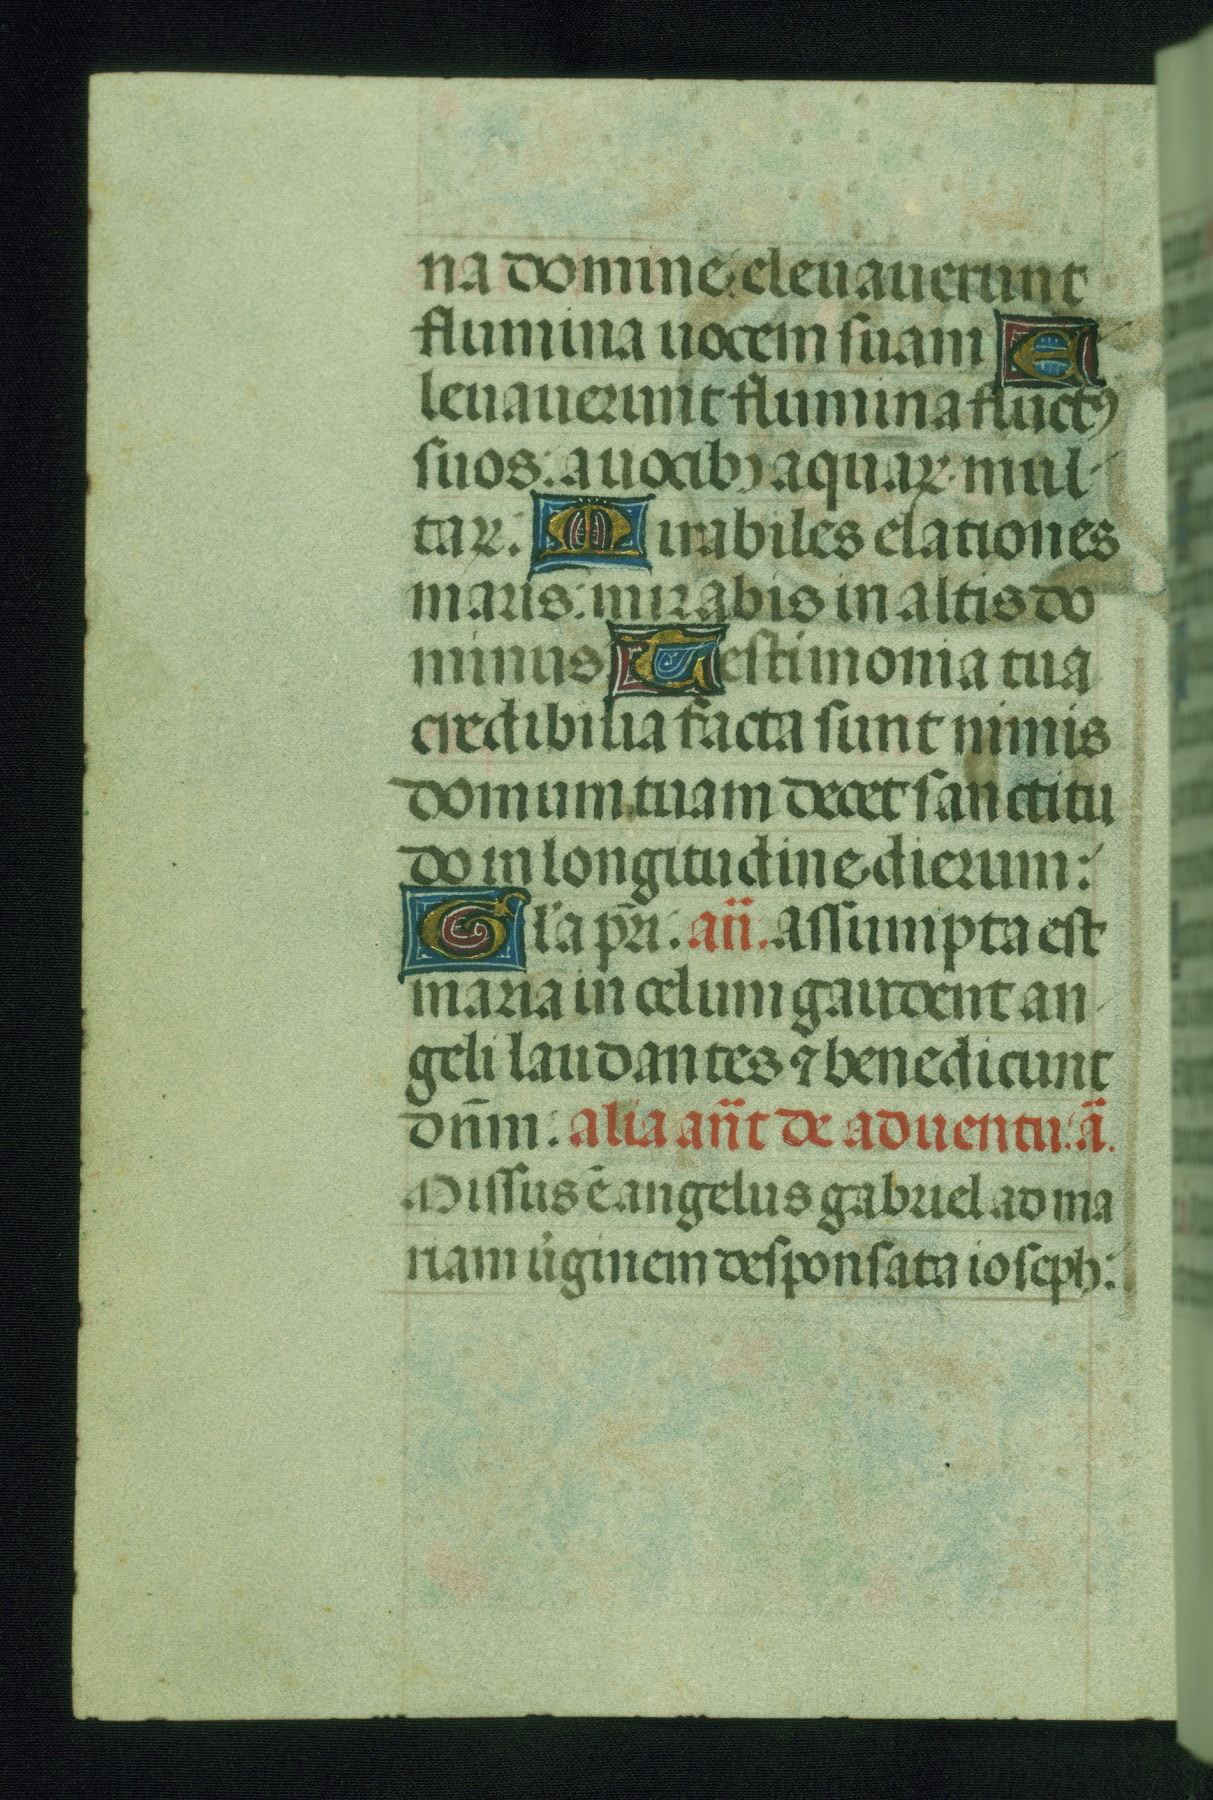 na domine: eleuauerunt
flumina uocem suam E
leuauerunt flumina fluctꝰ
suos: a uocibꝫ aquaꝝ mul-
taꝝ: Mirabiles elationes
maris: mirabis in altis do
minus Testimonia tua
credibilia facta sunt nimis
domum tuam decet sanctitu
do in longitudine dierum:
Gl'a pr̄i. añ. Assumpta est
maria in celum gaudent an-
geli laudantes ⁊ benedicunt
dn̄m: alia an̄t de aduentu. ā.
Missus ē angelus gabriel ad ma
riam u̓ginem desponsata ioseph: